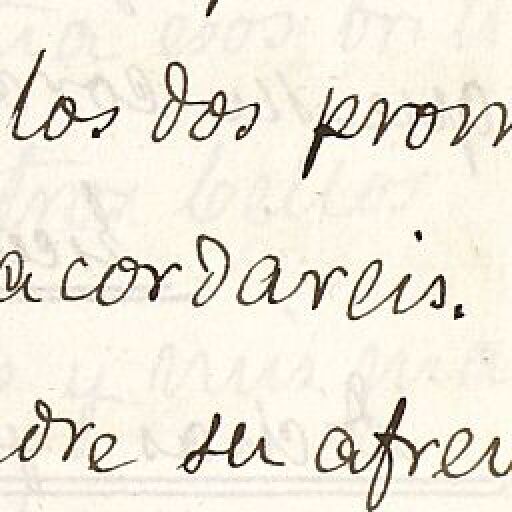 los dos prom
acordareis.
dre su afren